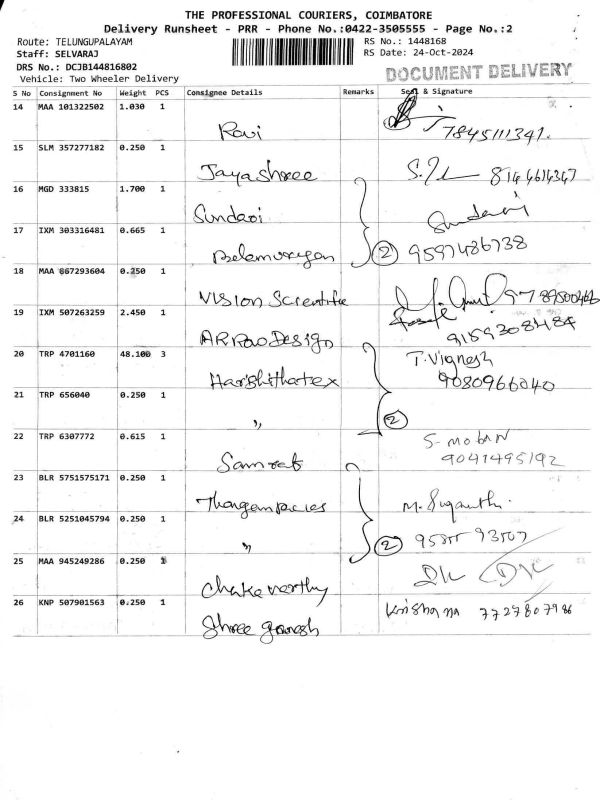 THE PROFESSIONAL COURIERS, COIMBATORE
Delivery Runsheet - PRR - Phone No.:0422-3505555 - Page No.:2
Route: TELUNGUPALAYAM RS No.: 1448168
Staff: SELVARAJ RS Date: 24-Oct-2024
DRS No.: DCJB144816802
Vehicle: Two Wheeler Delivery DOCUMENT DELIVERY
S No Consignment No Weight PCS Consignee Details Remarks Seal & Signature
14 MAA 101322502 1.030 1
Ravi 7845111341.
15 SLM 357277182 0.250 1
Jayashree
16 MGD 333815 1.700 1
Sundari Sundari
17 IXM 303316481 0.665 1
Balamurugan 2 9597486738
18 MAA 867293604 0.250 1
Vision Scientific
19 IXM 507263259 2.450 1
ARRow Design 9159308484
20 TRP 4701160 48.100 3 T. Vignesh
Harshithatex 9080966040
21 TRP 656040 0.250 1
" 2
22 TRP 6307772 0.615 1 S. moban
Samrat 9041495192
23 BLR 5751575171 0.250 1
24 BLR 5251045794 0.250 1
" 2
25 MAA 945249286 0.250 1
26 KNP 507901563 0.250 1 Krishna 7727807986
Shree ganesh